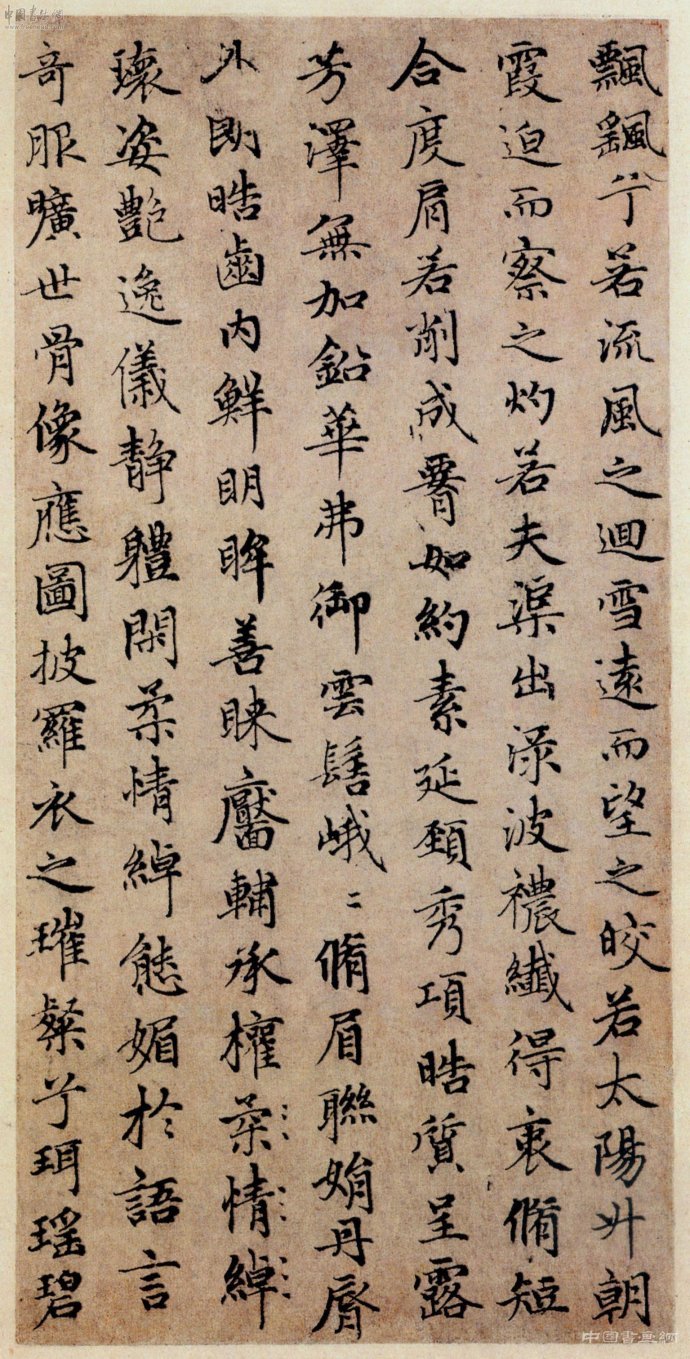 中國書畫網
飄飖兮若流風之迴雪遠而望之晈若太陽升朝
霞迫而察之灼若夫渠出淥波襛纖得衷脩短
合度肩若削成腰如約素延頸秀項晧質呈露
芳澤無加鉛華弗御雲髻峨〻脩眉聯娟丹脣
外朗晧齒內鮮明眸善睞靨輔承權柔情綽
瓌姿艷逸儀靜體閑柔情綽態媚於語言
奇服曠世骨像應圖披羅衣之璀粲兮珥瑤碧
中國書畫網